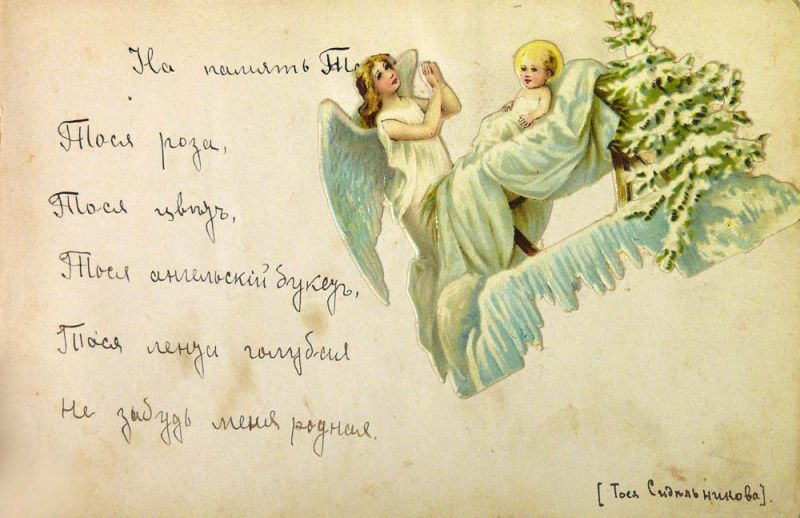 На память То
Тося роза,
Тося цвѣтъ,
Тося ангельскій букетъ,
Тося лента голубая
Не забудь меня родная.
[Тося Сидельникова].